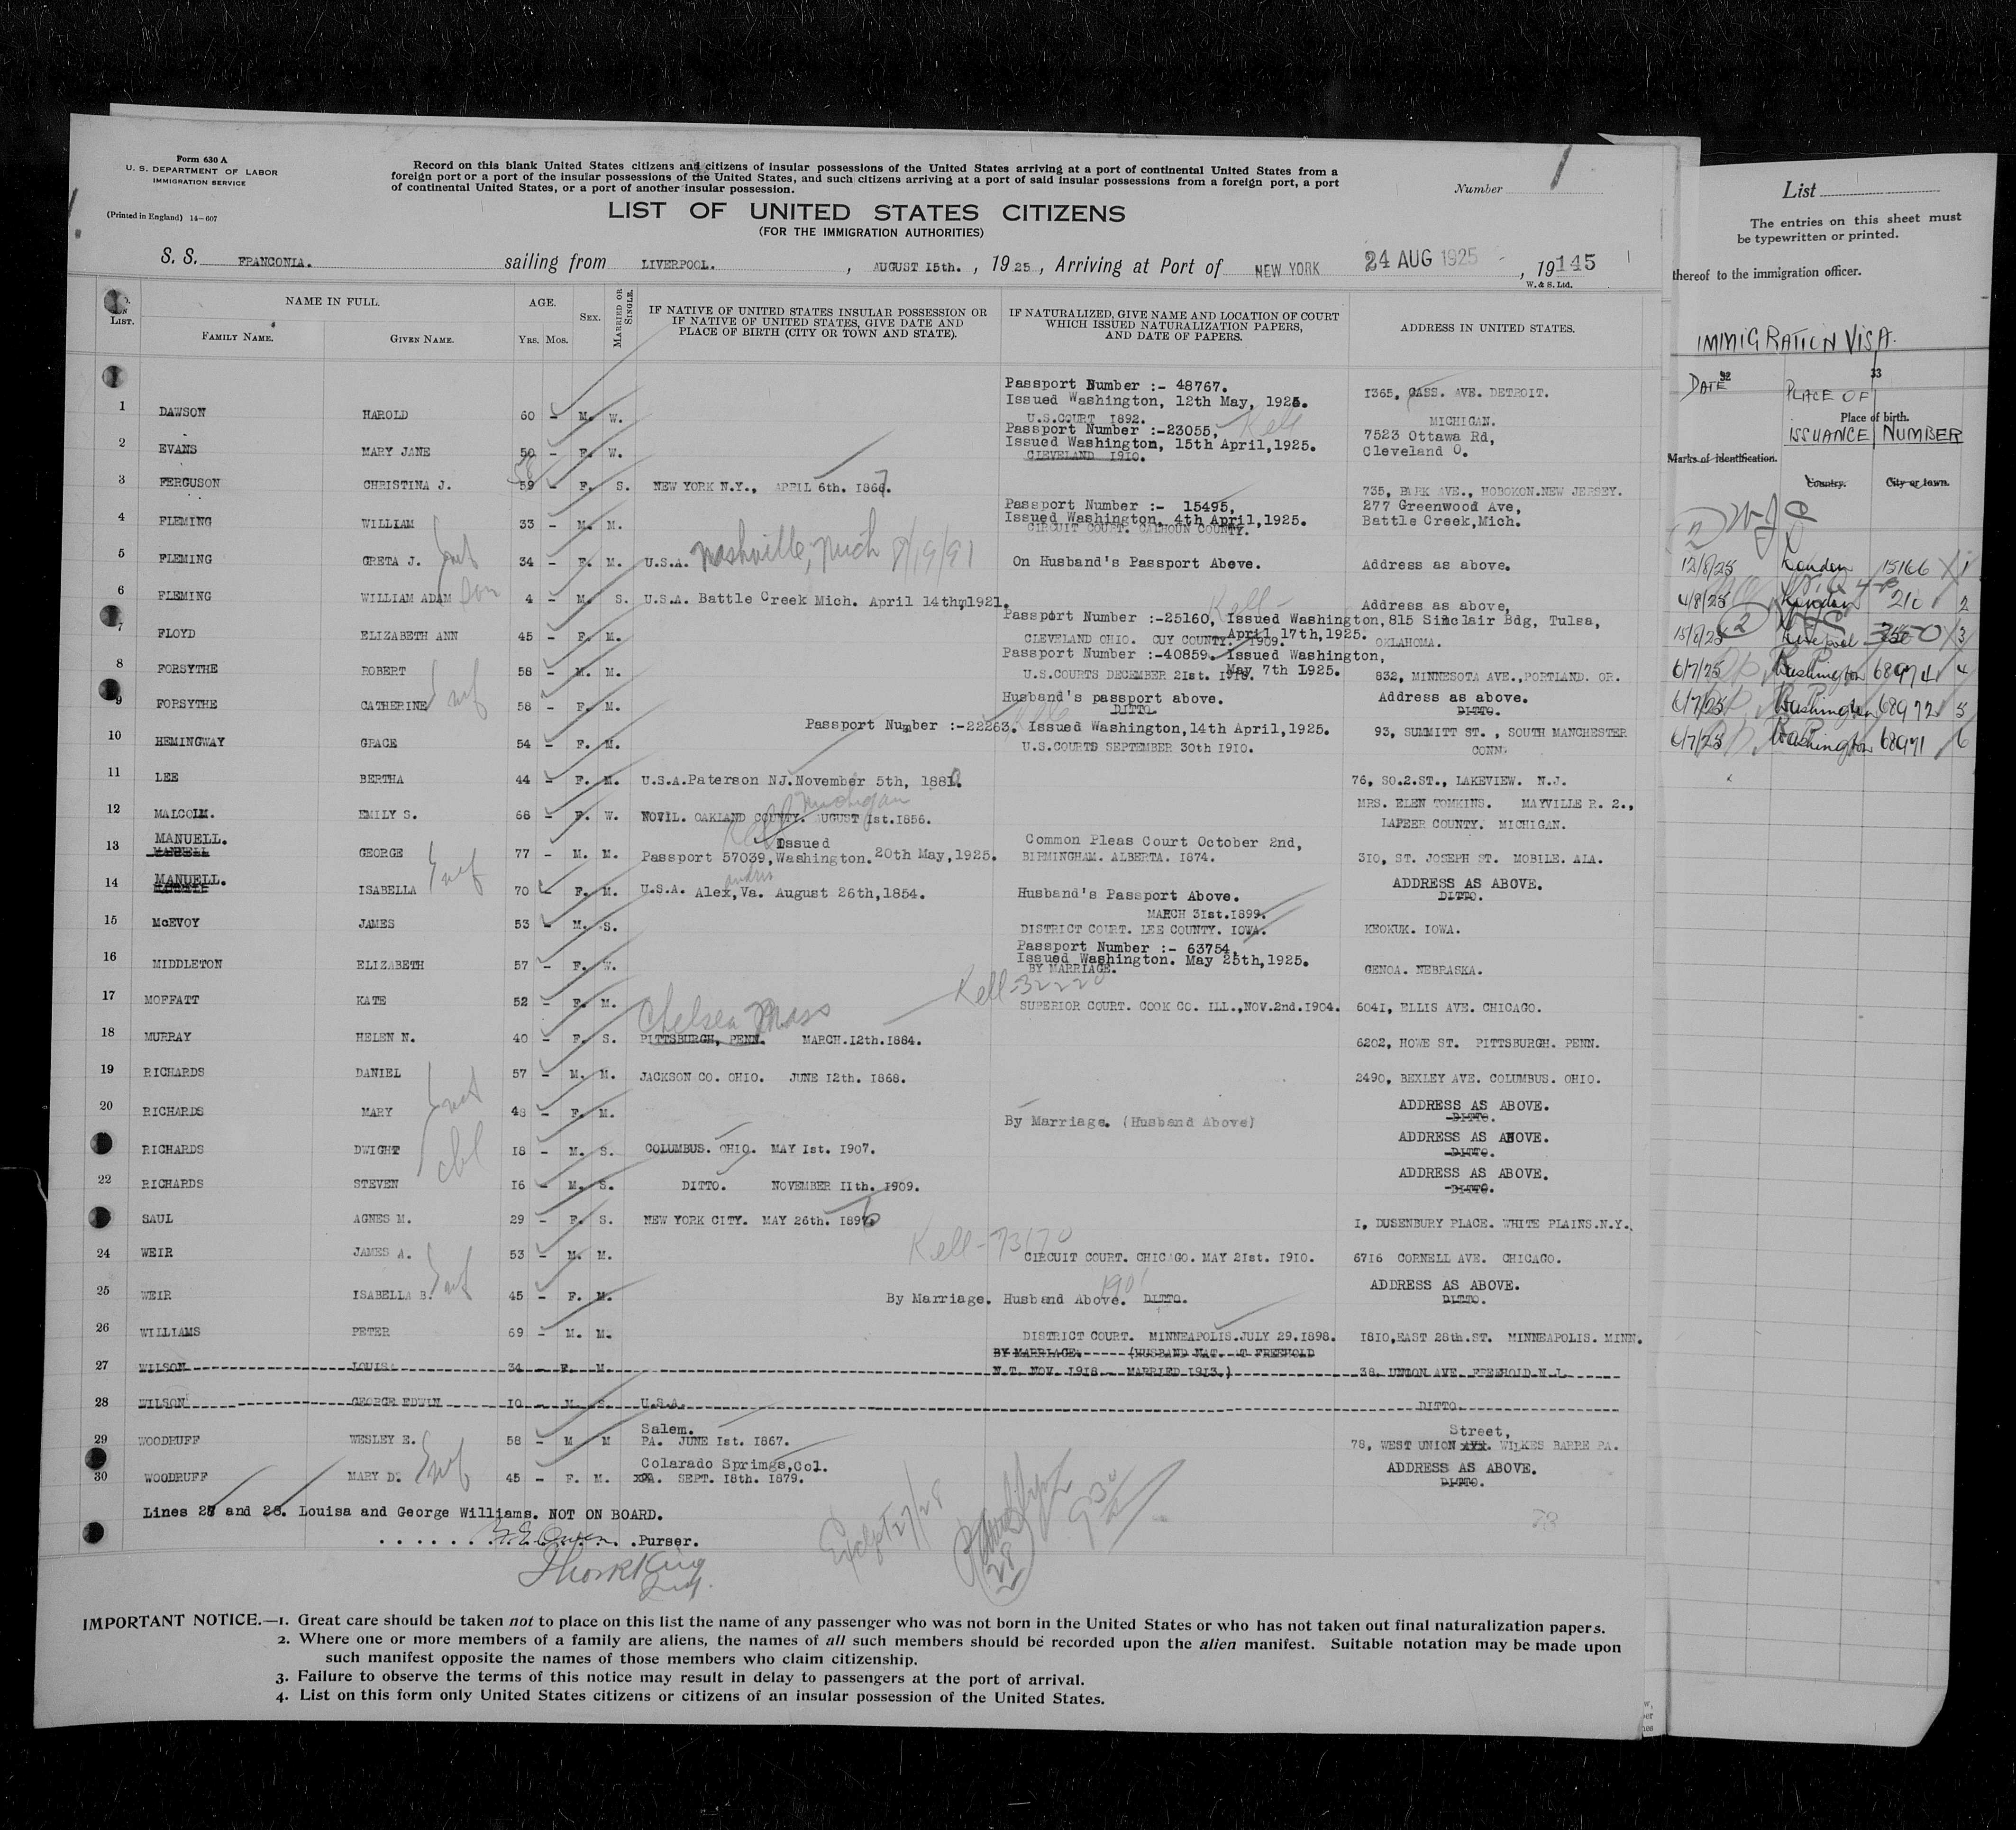 Form 630 A
U. S. DEPARTMENT OF LABOR
IMMIGRATION SERVICE
(Printed in England) 14-607
Record on this blank United States citizens and citizens of insular possessions of the United States arriving at a port of continental United States from a
foreign port or a port of the insular possessions of the United States, and such citizens arriving at a port of said insular possessions from a foreign port, a port
of continental United States, or a port of another insular possession.
Number 1
LIST OF UNITED STATES CITIZENS
(FOR THE IMMIGRATION AUTHORITIES)
S. S. FRANCONIA. sailing from LIVERPOOL. , AUGUST 15th. , 1925 , Arriving at Port of NEW YORK 24 AUG 1925 , 19 145
W. & S. Ltd.
LIST.
NAME IN FULL.
FAMILY NAME. GIVEN NAME.
AGE.
YRS. MOS.
SEX.
MARRIED OR SINGLE.
IF NATIVE OF UNITED STATES INSULAR POSSESSION OR
IF NATIVE OF UNITED STATES, GIVE DATE AND
PLACE OF BIRTH (CITY OR TOWN AND STATE).
IF NATURALIZED, GIVE NAME AND LOCATION OF COURT
WHICH ISSUED NATURALIZATION PAPERS,
AND DATE OF PAPERS.
ADDRESS IN UNITED STATES.
Passport Number :- 48767.
Issued Washington, 12th May, 1925.
1365, CASS. AVE. DETROIT.
1 DAWSON HAROLD 60 - M. W. U.S.COURT 1892. MICHIGAN.
Passport Number :-23055, Kell 7523 Ottawa Rd,
2 EVANS MARY JANE 50 - F. W. Issued Washington, 15th April,1925. Cleveland O.
CLEVELAND 1910.
58
3 FERGUSON CHRISTINA J. 59 - F. S. NEW YORK N.Y., APRIL 6th. 1867. 735, PARK AVE., HOBOKON.NEW JERSEY.
Passport Number :- 15495, 277 Greenwood Ave,
4 FLEMING WILLIAM 33 - M. M. Issued Washington, 4th April,1925. Battle Creek,Mich.
CIRCUIT COURT. CALHOUN COUNTY.
5 FLEMING GRETA J. 34 - F. M. U.S.A. Nashville, Mich 8/19/91 On Husband's Passport Above. Address as above.
6 FLEMING WILLIAM ADAM Son 4 - M. S. U.S.A. Battle Creek Mich. April 14thm1921. Address as above,
Kell-
Passport Number :-25160, Issued Washington, 815 Sinclair Bdg, Tulsa,
April 17th,1925.
7 FLOYD ELIZABETH ANN 45 - F. M. CLEVELAND OHIO. CUY COUNTY. 1909. OKLAHOMA.
Passport Number :-40859. Issued Washington,
May 7th 1925.
8 FORSYTHE ROBERT 58 - M. M. U.S.COURTS DECEMBER 21st. 832, MINNESOTA AVE.,PORTLAND. OR.
9 FORSYTHE CATHERINE wf 58 - F. M. Husband's passport above. Address as above.
DITTO. DITTO.
Passport Number :-22263. Issued Washington,14th April,1925.
10 HEMINGWAY GRACE 54 - F. M. U.S.COURTS SEPTEMBER 30th 1910. 93, SUMMITT ST. , SOUTH MANCHESTER
CONN.
11 LEE BERTHA 44 - F. M. U.S.A.Paterson NJ.November 5th, 1880. 76, SO.2.ST., LAKEVIEW. N.J.
Michigan
12 MALCOLM. EMILY S. 68 - F. W. NOVIL. OAKLAND COUNTY. AUGUST 1st.1856. MRS. ELEN TOMKINS. MAYVILLE R. 2.,
LAPEER COUNTY. MICHIGAN.
MANUELL.
13 MANUELL GEORGE 77 - M. M. Passport 57039, Issued Washington. 20th May,1925. Common Pleas Court October 2nd,
BIRMINGHAM. ALBERTA. 1874. 310, ST. JOSEPH ST. MOBILE. ALA.
MANUELL.
14 ISABELLA wf 70 - F. M. U.S.A. Alex,Va. August 26th,1854. Husband's Passport Above. ADDRESS AS ABOVE.
andria
DITTO.
MARCH 31st.1899.
15 McEVOY JAMES 53 - M. S. DISTRICT COURT. LEE COUNTY. IOWA. KEOKUK. IOWA.
Passport Number :- 63754,
Issued Washington. May 25th,1925.
16 MIDDLETON ELIZABETH 57 - F. W. BY MARRIAGE. GENOA. NEBRASKA.
Kell-32220
17 MOFFATT KATE 52 - F. M. SUPERIOR COURT. COOK CO. ILL.,NOV.2nd.1904. 6041, ELLIS AVE. CHICAGO.
Chelsea Mass
18 MURRAY HELEN N. 40 - F. S. PITTSBURGH, PENN. MARCH.12th.1884. 6202, HOWE ST. PITTSBURGH. PENN.
19 RICHARDS DANIEL 57 - M. M. JACKSON CO. OHIO. JUNE 12th. 1868. 2490, BEXLEY AVE. COLUMBUS. OHIO.
20 RICHARDS MARY 48 - F. M. By Marriage. (Husband Above) ADDRESS AS ABOVE.
DITTO.
RICHARDS DWIGHT 18 - M. S. COLUMBUS. OHIO. MAY 1st. 1907. ADDRESS AS ABOVE.
DITTO.
22 RICHARDS STEVEN 16 - M. S. DITTO. NOVEMBER 11th. 1909. ADDRESS AS ABOVE.
DITTO.
SAUL AGNES M. 29 - F. S. NEW YORK CITY. MAY 26th. 1896 1, DUSENBURY PLACE. WHITE PLAINS.N.Y.
Kell-73170
24 WEIR JAMES A. 53 - M. M. CIRCUIT COURT. CHICAGO. MAY 21st. 1910. 6716 CORNELL AVE. CHICAGO.
1901
25 WEIR ISABELLA B. wf 45 - F. M. By Marriage. Husband Above. DITTO. ADDRESS AS ABOVE.
DITTO.
26 WILLIAMS PETER 69 - M. M. DISTRICT COURT. MINNEAPOLIS.JULY 29.1898. 1810,EAST 28th.ST. MINNEAPOLIS. MINN.
BY MARRIAGE. (HUSBAND NAT. T FREEHOLD
27 WILSON LOUISA 34 - F. M. N.T. NOV. 1918 - MARRIED 1913.) 38, UNION AVE. FREEHOLD.N.J.
28 WILSON GEORGE EDWIN 10 - M. S. U.S.A. DITTO.
Salem. Street,
29 WOODRUFF WESLEY E. 58 - M M PA. JUNE 1st. 1867. 78, WEST UNION WILKES BARRE PA.
Colarado Springs,Col.
30 WOODRUFF MARY D. wf 45 - F. M. SEPT. 18th. 1879. ADDRESS AS ABOVE.
DITTO.
Lines 27 and 28. Louisa and George Williams. NOT ON BOARD.
Purser.
IMPORTANT NOTICE.—1. Great care should be taken not to place on this list the name of any passenger who was not born in the United States or who has not taken out final naturalization papers.
2. Where one or more members of a family are aliens, the names of all such members should be recorded upon the alien manifest. Suitable notation may be made upon
such manifest opposite the names of those members who claim citizenship.
3. Failure to observe the terms of this notice may result in delay to passengers at the port of arrival.
4. List on this form only United States citizens or citizens of an insular possession of the United States.
List
The entries on this sheet must
be typewritten or printed.
thereof to the immigration officer.
IMMIGRATION VISA.
32 33
DATE PLACE OF
Place of birth.
ISSUANCE NUMBER
Marks of identification.
Country. City or town.
12/8/25 London 15166 1
4/8/25 London 210 2
15/8/25 Liverpool 350 3
6/7/25 Washington 68974 4
6/7/25 Washington 68972 5
6/7/25 Washington 68971 6